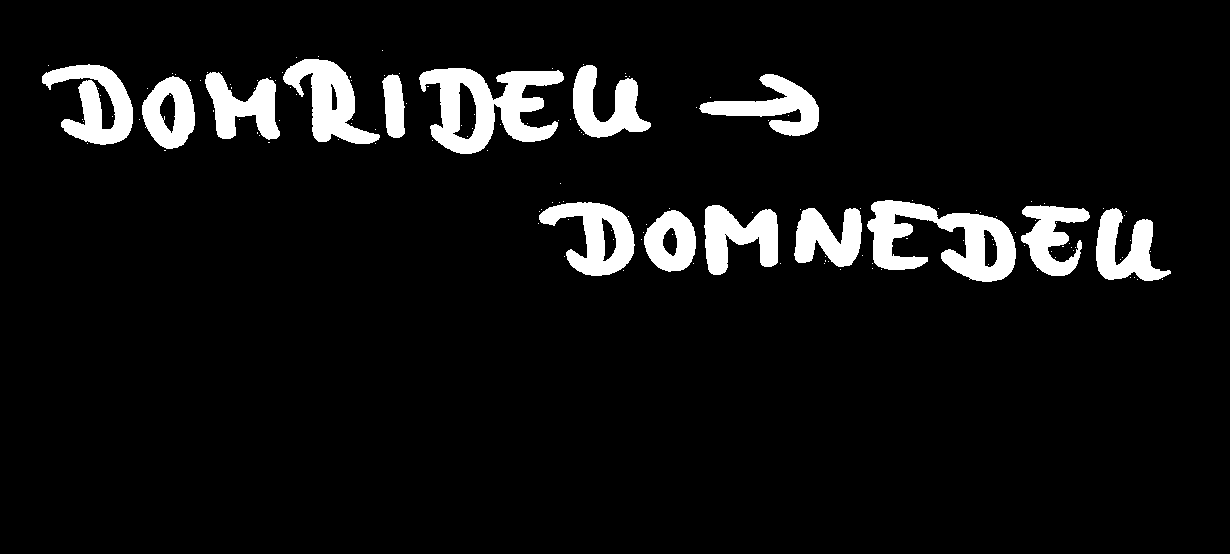 DOMRIDEU →
DOMNEDEU